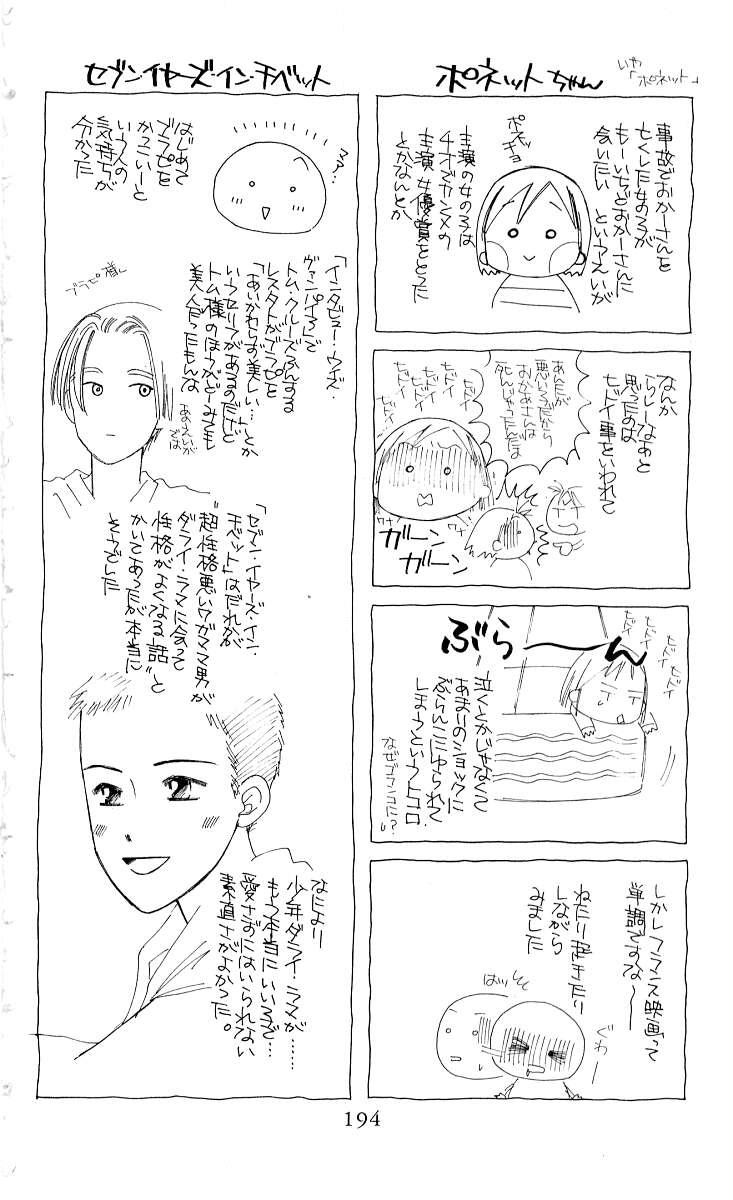 ポネットちゃん
いや
「ポネット」
事故でおかーさんを
亡くした女の子が
もーいちどおかーさんに
会いたい というえいが
ポネッ
チョ
主演の女の子は
4才でカンヌの
主演女優賞をとった
とかなんとか
なんか
らしーなぁと
思ったのは
ヒドイ事をいわれて
あんたが
悪いこだから
おかあさんは
死んじゃったんだは
ヒドイ
ヒドイ
ヒドイ
ヒドイ
ヒドイ
ワナ
ワナ
ガーン
ガーン
ヒドイ
ヒドイ
ヒドイ
ヒドイ
ぶらーーん
泣くとかじゃなくて
あまりのショックに
ぶらんこにゆられて
しまうというトコロ.
なぜブランコに!?
しかしフランス映画って
単調ですな〜
ねたり起きたり
しながら
みました
ぐわー
ばッ
セブン・イヤーズ・イン・チベット
はじめて
ブラピを
かっこいーと
いう人の
気持ちが
分かった
「インタビュー・ウィズ・
ヴァンパイア」で
トム・クルーズふんする
レスタトがブラピを
「あいかわらず美しい…」とか
いうセリフがあるのだけど
トム様のほうがどーみても
美人だったもんな
あのえいが
では
ブラピ様
「セブン・イヤーズ・イン・
チベット」はだれかが
"超性格悪いワガママ男が
ダライ・ラマに会って
性格がよくなる話"と
かいてあったが本当に
そうでした
なにより
少年ダライ・ラマが……
もう本当にいい子で…
愛さずにはいられない
素直さがよかった。
194